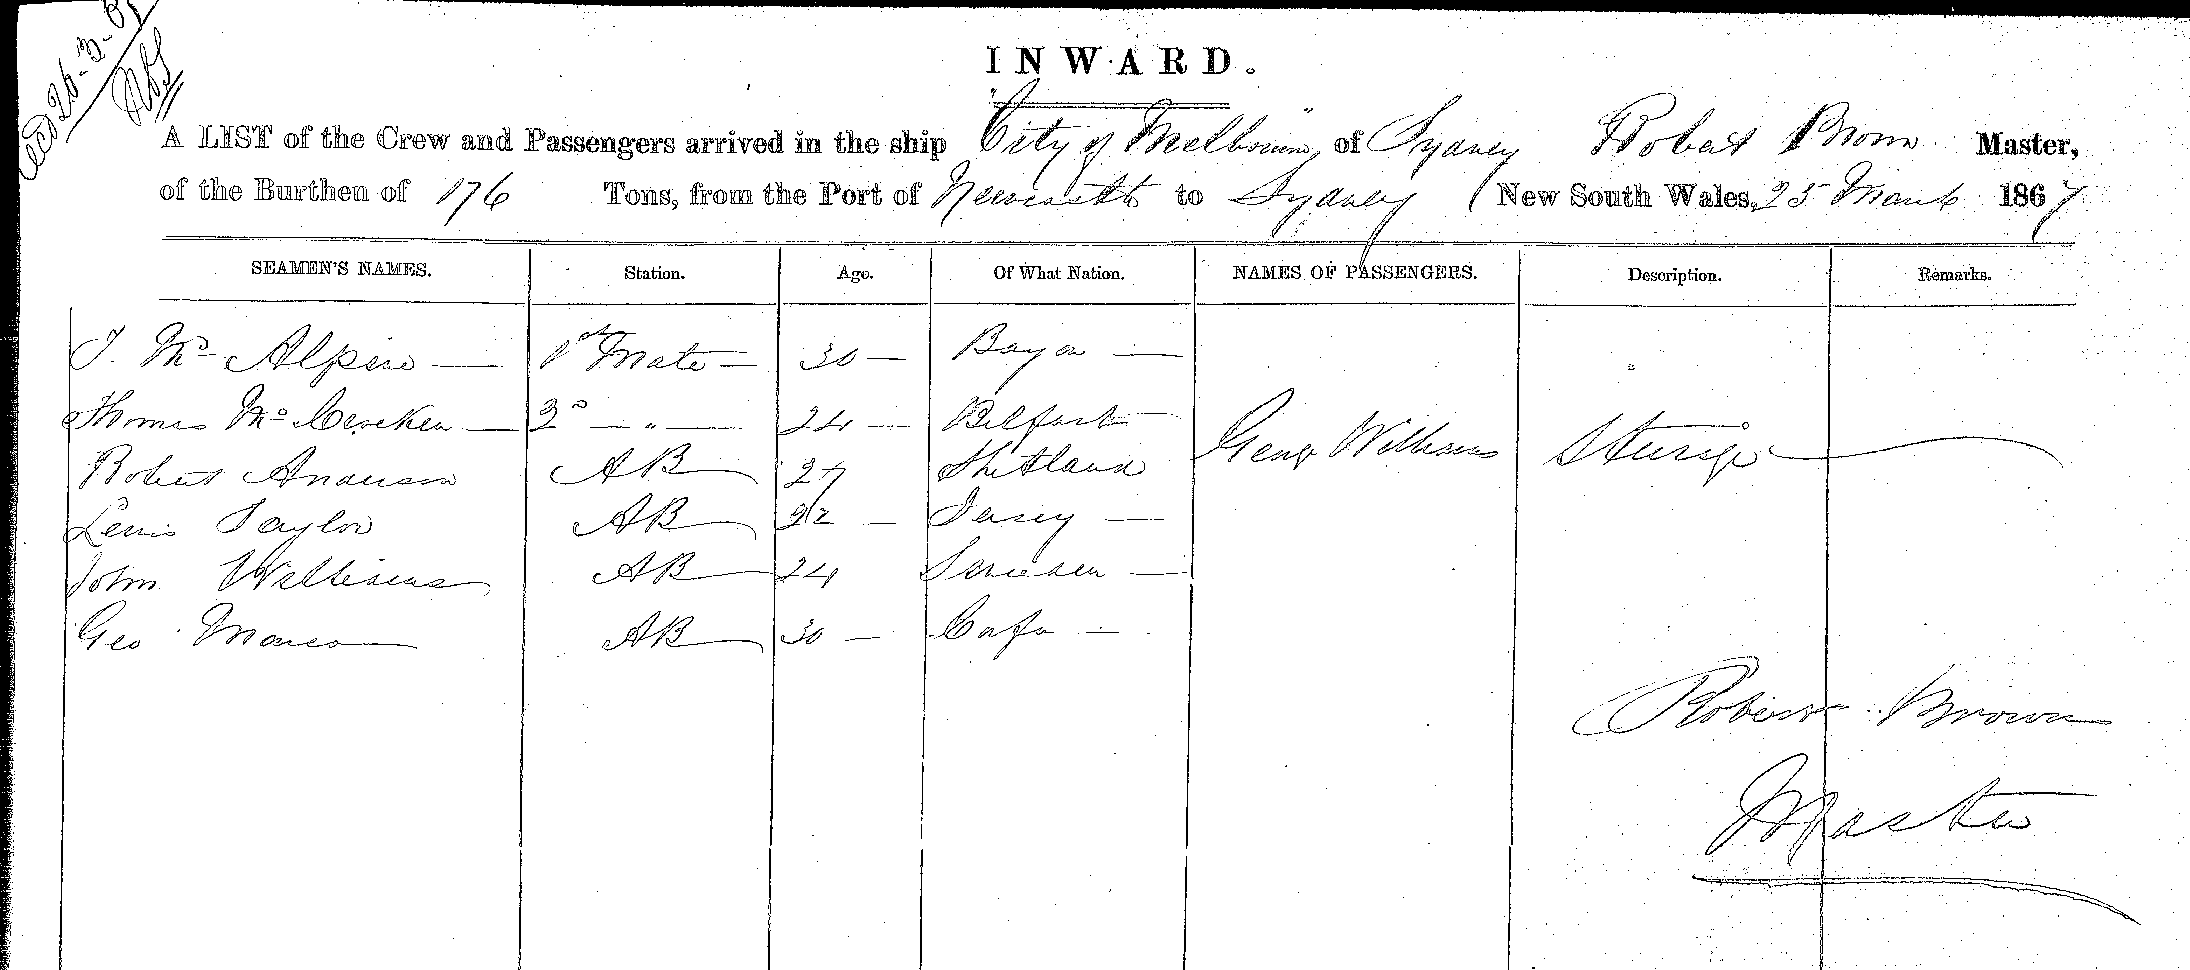 26-3-6
INWARD.
A LIST of the Crew and Passengers arrived in the ship City of Melbourne, of Sydney Robert Brown Master,
of the Burthen of 176 Tons, from the Port of Newcastle to Sydney New South Wales, 25 March 1867
SEAMEN'S NAMES. Station. Age. Of What Nation. NAMES OF PASSENGERS. Description. Remarks.
J. Mc Alpine — 1st Mate — 30 —
Thomas Mc Cracken — 2d — " — 24 — Belfast —
Robert Anderson AB 27 Shetland George Williams Steerage
Lewis Taylor AB 22 — Jersey —
John Williams AB 24 Sweden —
Geo Marco AB 30 —
Robert Brown
Master